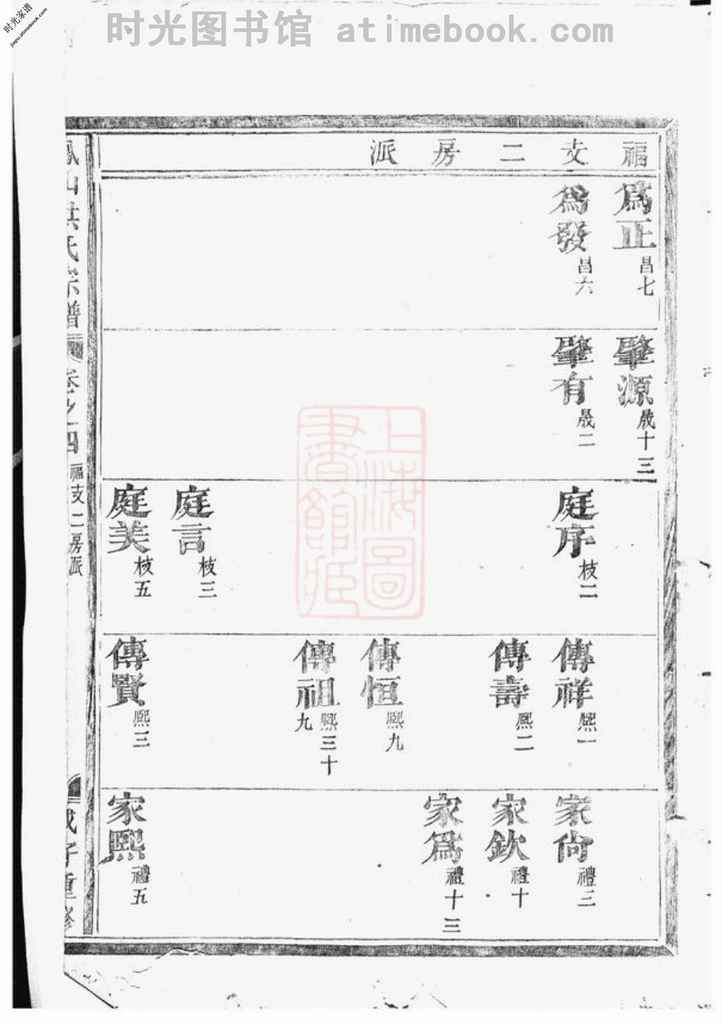 时光图书馆 atimebook.com
时光家谱
福支二房派
為正 昌七
為發 昌六
肇源 晟十三
肇有 晟二
庭序 枝二
庭言 枝三
庭美 枝五
傳祥 熙一
傳壽 熙二
傳恒 熙九
傳祖 熙三十九
傳賢 熙三
家尙 禮三
家欽 禮十
家為 禮十三
家熙 禮五
山洪氏宗譜 卷之四 福支二房派
重修
上海圖書館藏